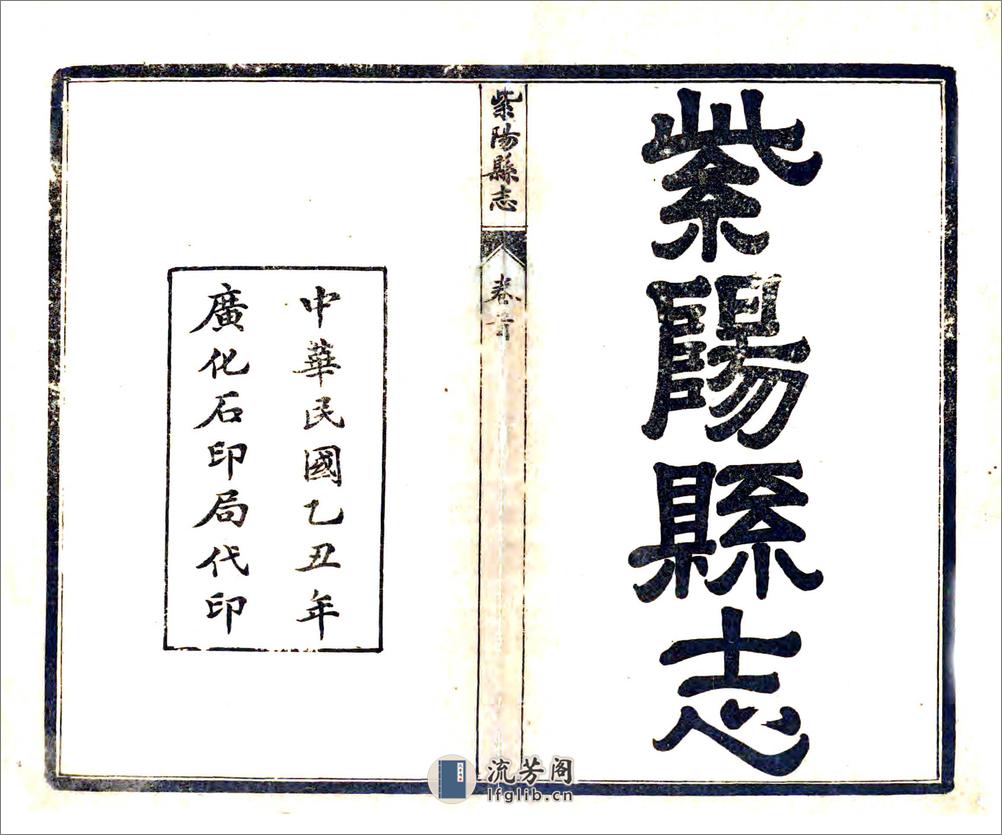 紫陽縣志
紫陽縣志
卷首
中華民國乙丑年
廣化石印局代印
流芳阁
lfglib.cn